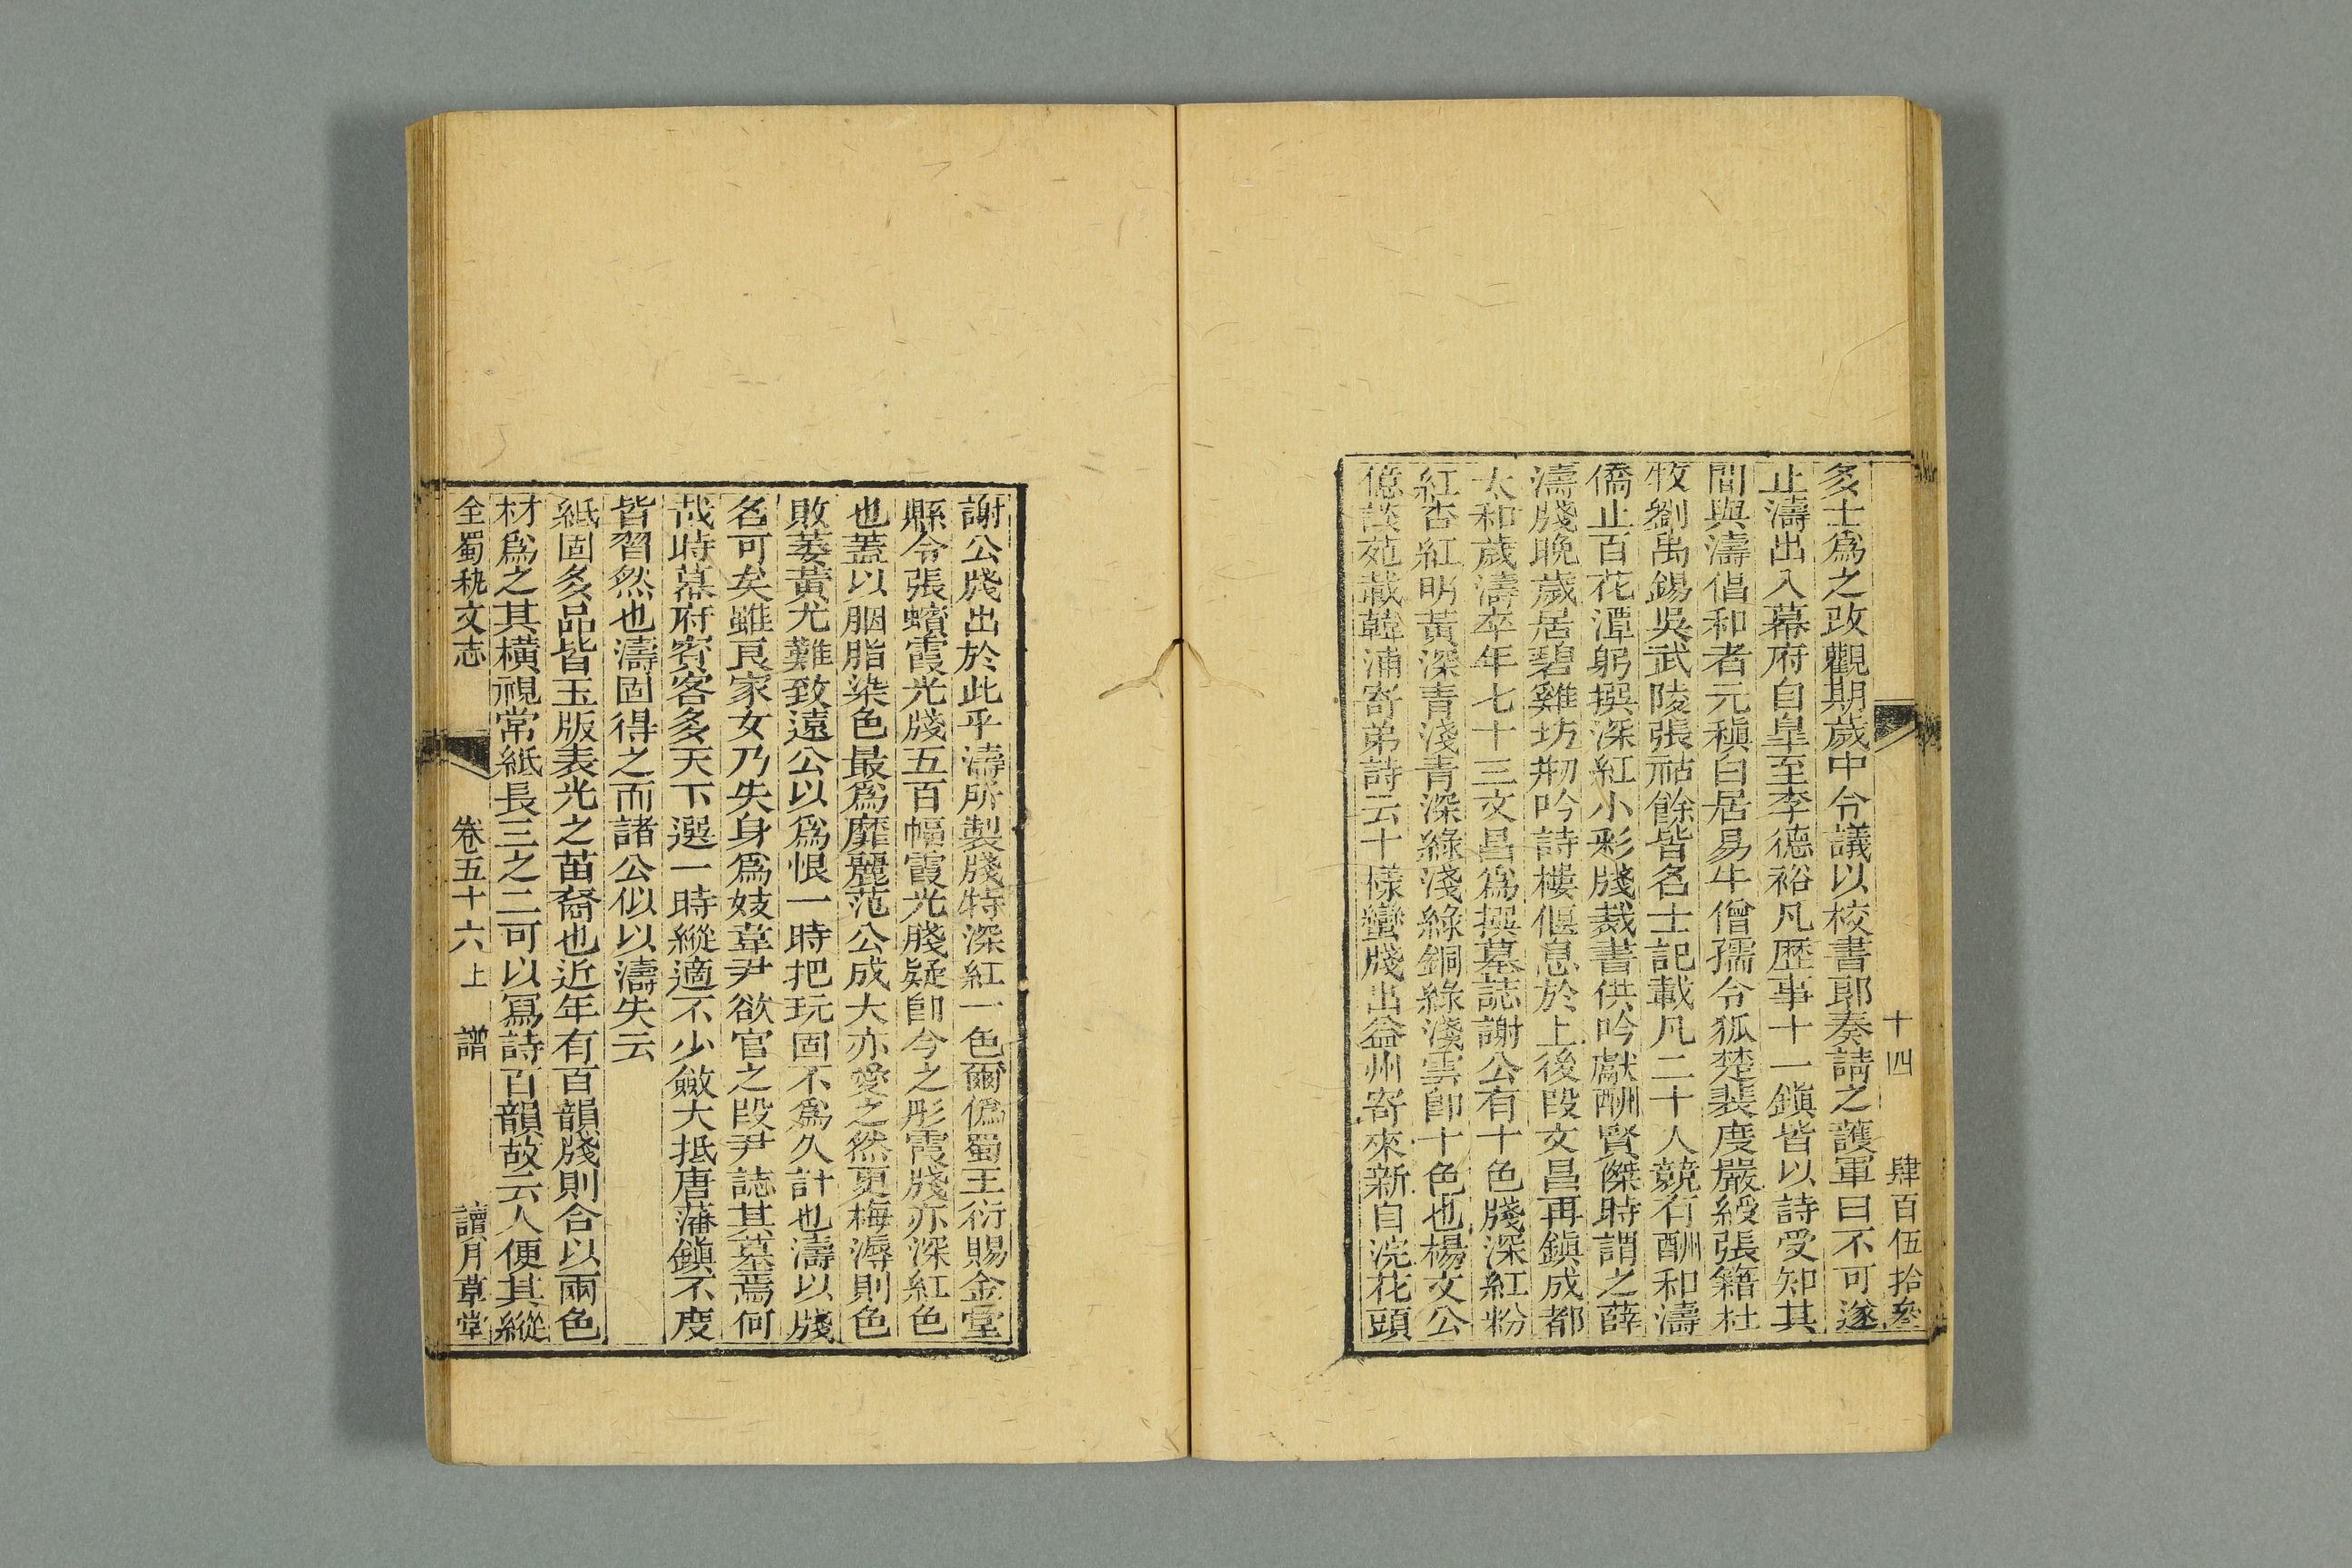 十四　肆百伍拾叁
多士爲之改觀期歲中令議以校書郎奏請之護軍曰不可遂
止濤出入幕府自皐至李德裕凡歴事十一鎭皆以詩受知其
間與濤倡和者元稹白居易牛僧孺令狐楚裴度嚴綬張籍杜
牧劉禹錫吳武陵張祜餘皆名士記載凡二十人競有酬和濤
僑止百花潭躬撰深紅小彩牋裁書供吟獻酬賢傑時謂之薛
濤牋晚歲居碧雞坊剏吟詩樓偃息於上後叚文昌再鎭成都
太和歲濤卒年七十三文昌爲撰墓誌謝公有十色牋深紅粉
紅杏紅明黃深青淺青深綠淺綠銅綠淺雲卽十色也楊文公
億談苑載韓浦寄弟詩云十樣蠻牋出益州寄來新自浣花頭
謝公牋出於此乎濤所製牋特深紅一色爾僞蜀王衍賜金堂
縣令張蠙霞光牋五百幅霞光牋疑卽今之彤霞牋亦深紅色
也蓋以胭脂染色最爲靡麗范公成大亦愛之然更梅溽則色
敗萎黃尤難致遠公以爲恨一時把玩固不爲久計也濤以牋
名可矣雖良家女乃失身爲妓韋尹欲官之叚尹誌其墓焉何
哉時幕府賓客多天下選一時縱適不少斂大抵唐藩鎭不度
皆習然也濤固得之而諸公似以濤失云
紙固多品皆玉版表光之苗裔也近年有百韻牋則合以兩色
材爲之其橫視常紙長三之二可以寫詩百韻故云人便其縱
全蜀秇文志　卷五十六上　譜　讀月草堂